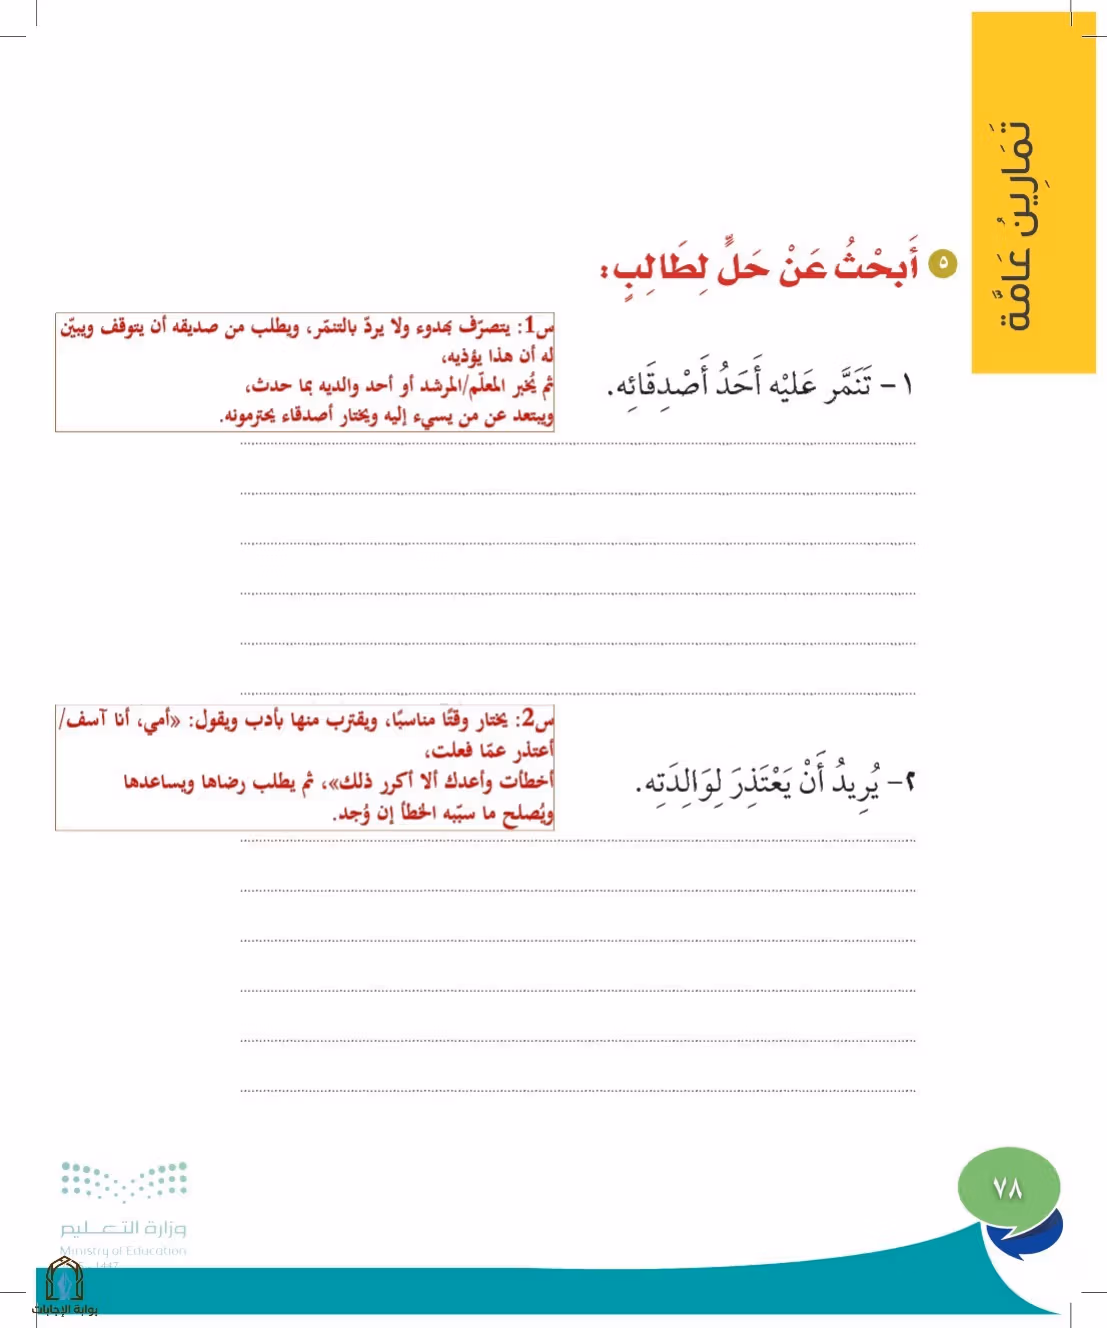 تَمَارِينُ عَامَّة
٥ أَبحْثُ عَنْ حَلٍّ لِطَالِبٍ:
س1: يتصرّف بهدوء ولا يردّ بالتنمّر، ويطلب من صديقه أن يتوقف ويبيّن
له أن هذا يؤذيه،
ثم يُخبر المعلّم/المرشد أو أحد والديه بما حدث،
ويبتعد عن من يسيء إليه ويختار أصدقاء يحترمونه.
١- تَنَمَّر عَليْه أَحَدُ أَصْدِقَائِه.
س2: يختار وقتًا مناسبًا، ويقترب منها بأدب ويقول: «أمي، أنا آسف/
أعتذر عمّا فعلت،
أخطأت وأعدك ألا أكرر ذلك»، ثم يطلب رضاها ويساعدها
ويُصلح ما سبّبه الخطأ إن وُجد.
٢- يُرِيدُ أَنْ يَعْتَذِرَ لِوَالِدَتِه.
٧٨
وزارة التعليم
Ministry of Education
1447
بوابة الإجابات